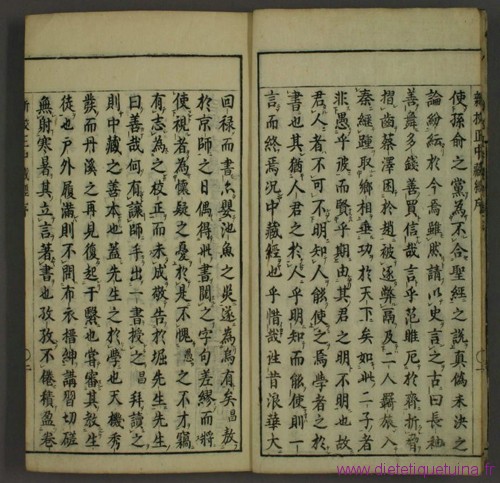 使孫俞之黨為不合聖經之説真偽未決之
論紛紜於今焉雖然請以史言之古曰長袖
善舞多錢善買信哉言乎范雎厄於齊折脅
摺齒蔡澤困於趙被逐弊鬲及二人羈旅入
秦繼踵取卿相垂功於天下矣如此二子者
非愚乎彼而賢乎此期由其君之明不明也故
君人者不可不明知人能使之焉學者之於
書也其猶人君之於人乎明知而能使則一
言而終焉況中藏經也乎惜哉性昔浪華大
回禄而書亦嬰池魚之災遂為烏有矣昌敖
於京師之日偶得此書閲之字句差繆而將
使視者為懷疑之憂於是不愧愚之不才竊
有志為之校正而未成敬告於堀先生先生
曰善哉何有讓師乎出一書授之昌拜讀之
則中藏之善本也蓋先生之於學也天機秀
發而丹溪之再見復起于醫也嘗審其教生
徒也戸外屨滿則不閉布衣搢紳講習切磋
無射寒暑其立言著書也孜孜不倦積盈卷
www.dietetiquetuina.fr